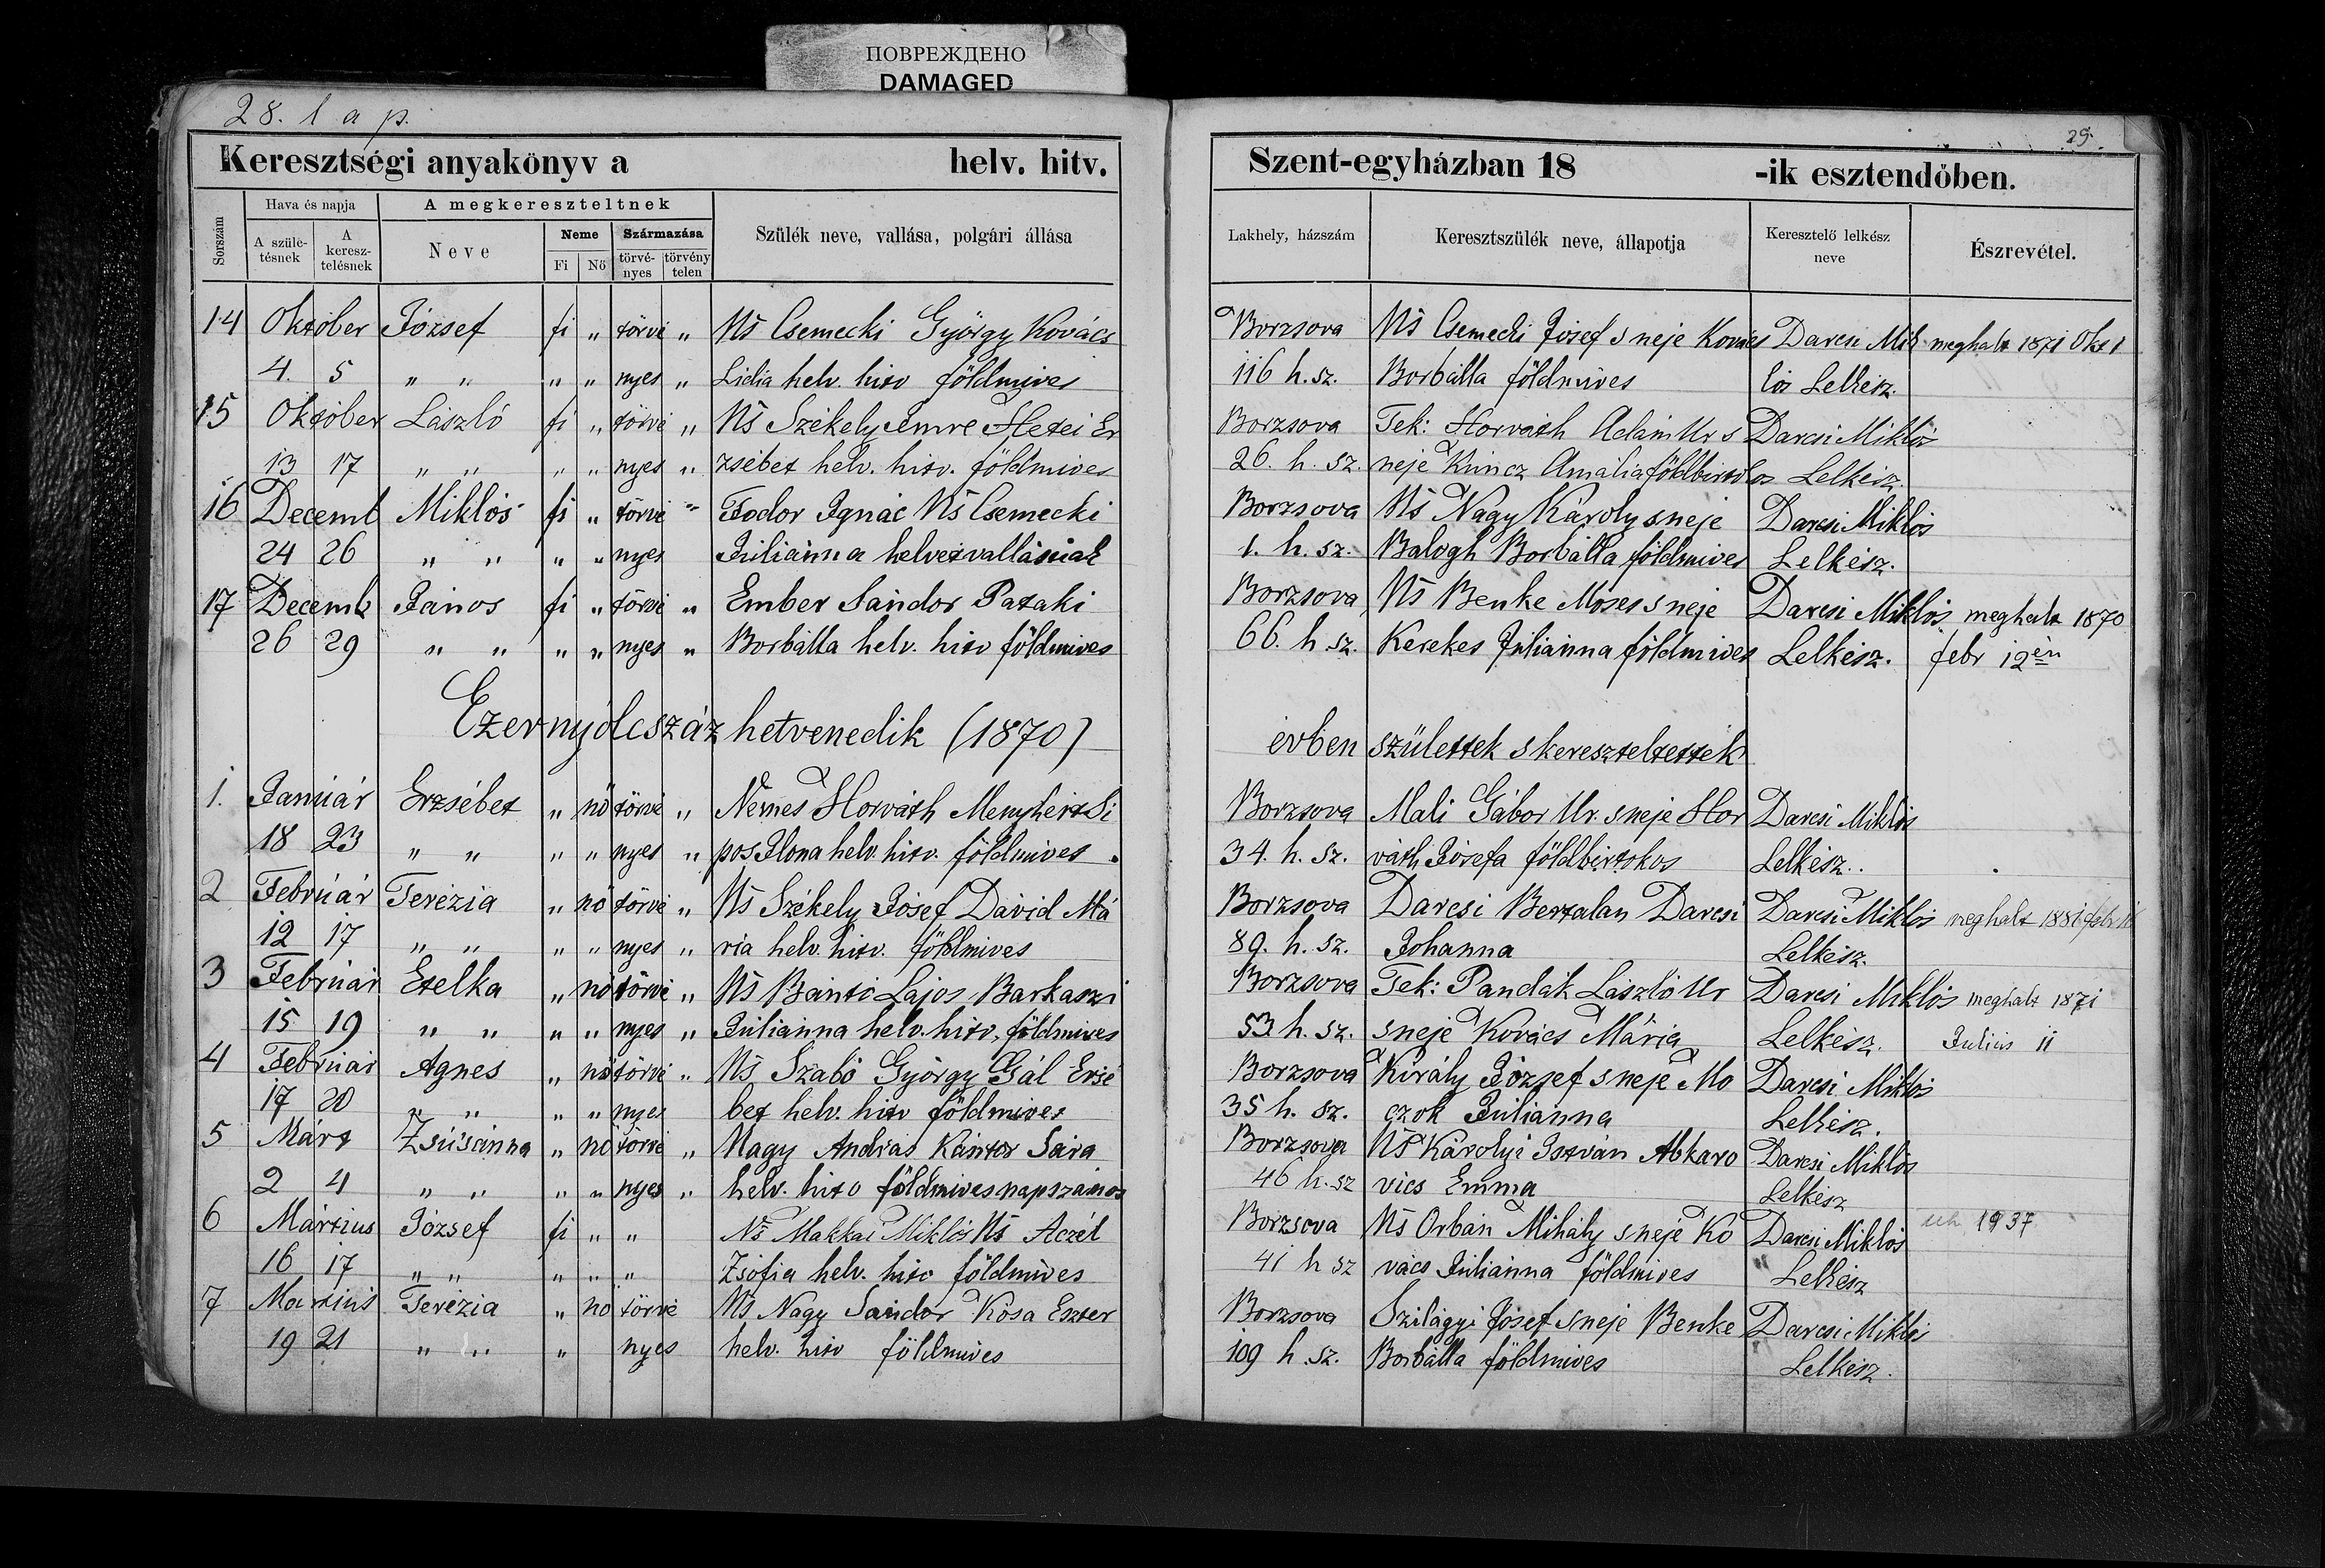 ПОВРЕЖДЕНО
DAMAGED
28. lap.
Keresztségi anyakönyv a helv. hitv.
Sorszám
Hava és napja
A megkereszteltnek
A szüle-tésnek
A keresz-telésnek
Neve
Neme
Származása
Fi
Nő
törvé-nyes
törvény telen
Szülék neve, vallása, polgári állása
14 Október József fi „ törvé „ Ns Csemecki György Kovács
4. 5 „ „ „ „ nyes „ Lidia helv. hitv földmives
15 Október László fi „ törvé „ Ns Székely Imre Hetei Er
13 17 „ „ „ „ nyes „ zsébet helv. hitv. földmives
16 Decemb Miklós fi „ törvé „ Fodor Ignác Ns Csemecki
24 26 „ „ „ „ nyes Juliánna helvét vallásuak
17 Decemb János fi „ törvé „ Ember Sándor Pataki
26 29 „ „ „ „ nyes „ Borbálla helv. hitv földmives
Ezernyolcszáz hetvenedik (1870)
1. Január Erzsébet „ nő törvé „ Nemes Horváth Menyhért Si
18 23 „ „ „ „ nyes „ pos Ilona helv. hitv. földmives.
2 Február Terézia „ nő törvé „ Ns Székely Jósef Dávid Má
12 17 „ „ „ „ nyes „ ria helv. hitv. földmives
3 Február Etelka „ nő törvé „ Ns Bántó Lajos Barkaszi
15 19 „ „ „ „ nyes „ Juliánna helv. hitv. földmives
4 Február Agnes „ nő törvé „ Ns Szabó György Gál Ersé
17 20 „ „ „ „ nyes bet helv. hitv földmives
5 Márt Zsúsánna „ nő törvé „ Nagy András Kántor Sára
2 4 „ „ „ „ nyes „ helv. hitv földmives napszámos
6 Mártius József fi „ „ Ns Makkai Miklós Ns Aczél
16 17 „ „ „ „ „ Zsófia helv. hitv földmives
7 Martius Terézia „ nő törvé Ns Nagy Sándor Kósa Eszter
19 21 „ „ „ nyes helv. hitv földmives
29.
Szent-egyházban 18 -ik esztendőben.
Lakhely, házszám
Keresztszülék neve, állapotja
Keresztelő lelkész neve
Észrevétel.
Borzsova Ns Csemecki Jósef s neje Kovács Darcsi Mik meghalt 1871 Okt 1
116 h. sz. Borbálla földmives lós Lelkész.
Borzsova Tek: Horváth Adám Ur s Darcsi Miklós
26. h. sz. neje Kúncz Amália földbirtokos Lelkész.
Borzsova Ns Nagy Károly s neje Darcsi Miklós
1. h. sz. Balogh Borbálla földmives Lelkész.
Borzsova Ns Benke Móses s neje Darcsi Miklós meghalt 1870
66. h sz. Kerekes Juliánna földmives Lelkész. febr 12én
évben születtek s kereszteltettek
Borzsova Mali Gábor Ur. s neje Hor Darcsi Miklós
34. h. sz. váth Jósefa földbirtokos Lelkész..
Borzsova Darcsi Bertalan Darcsi Darcsi Miklós meghalt 1881 febr
89. h. sz. Johanna Lelkész.
Borzsova Tek: Pandák László Ur Darcsi Miklós meghalt 1871
53 h. sz. s neje Kovács Mária Lelkész. Julius 11
Borzsova Király József s neje Mo Darcsi Miklós
35 h. sz. czok Juliánna Lelkész.
Borzsova Ns Károlyi István Abkaro Darcsi Miklós
46 h. sz vics Emma Lelkész
Borzsova Ns Orbán Mihály s neje Ko Darcsi Miklós 1937
41 h sz vács Juliánna földmives Lelkész
Borzsova Szilágyi Jósef s neje Benke Darcsi Miklós
109 h. sz. Borbálla földmives Lelkész.